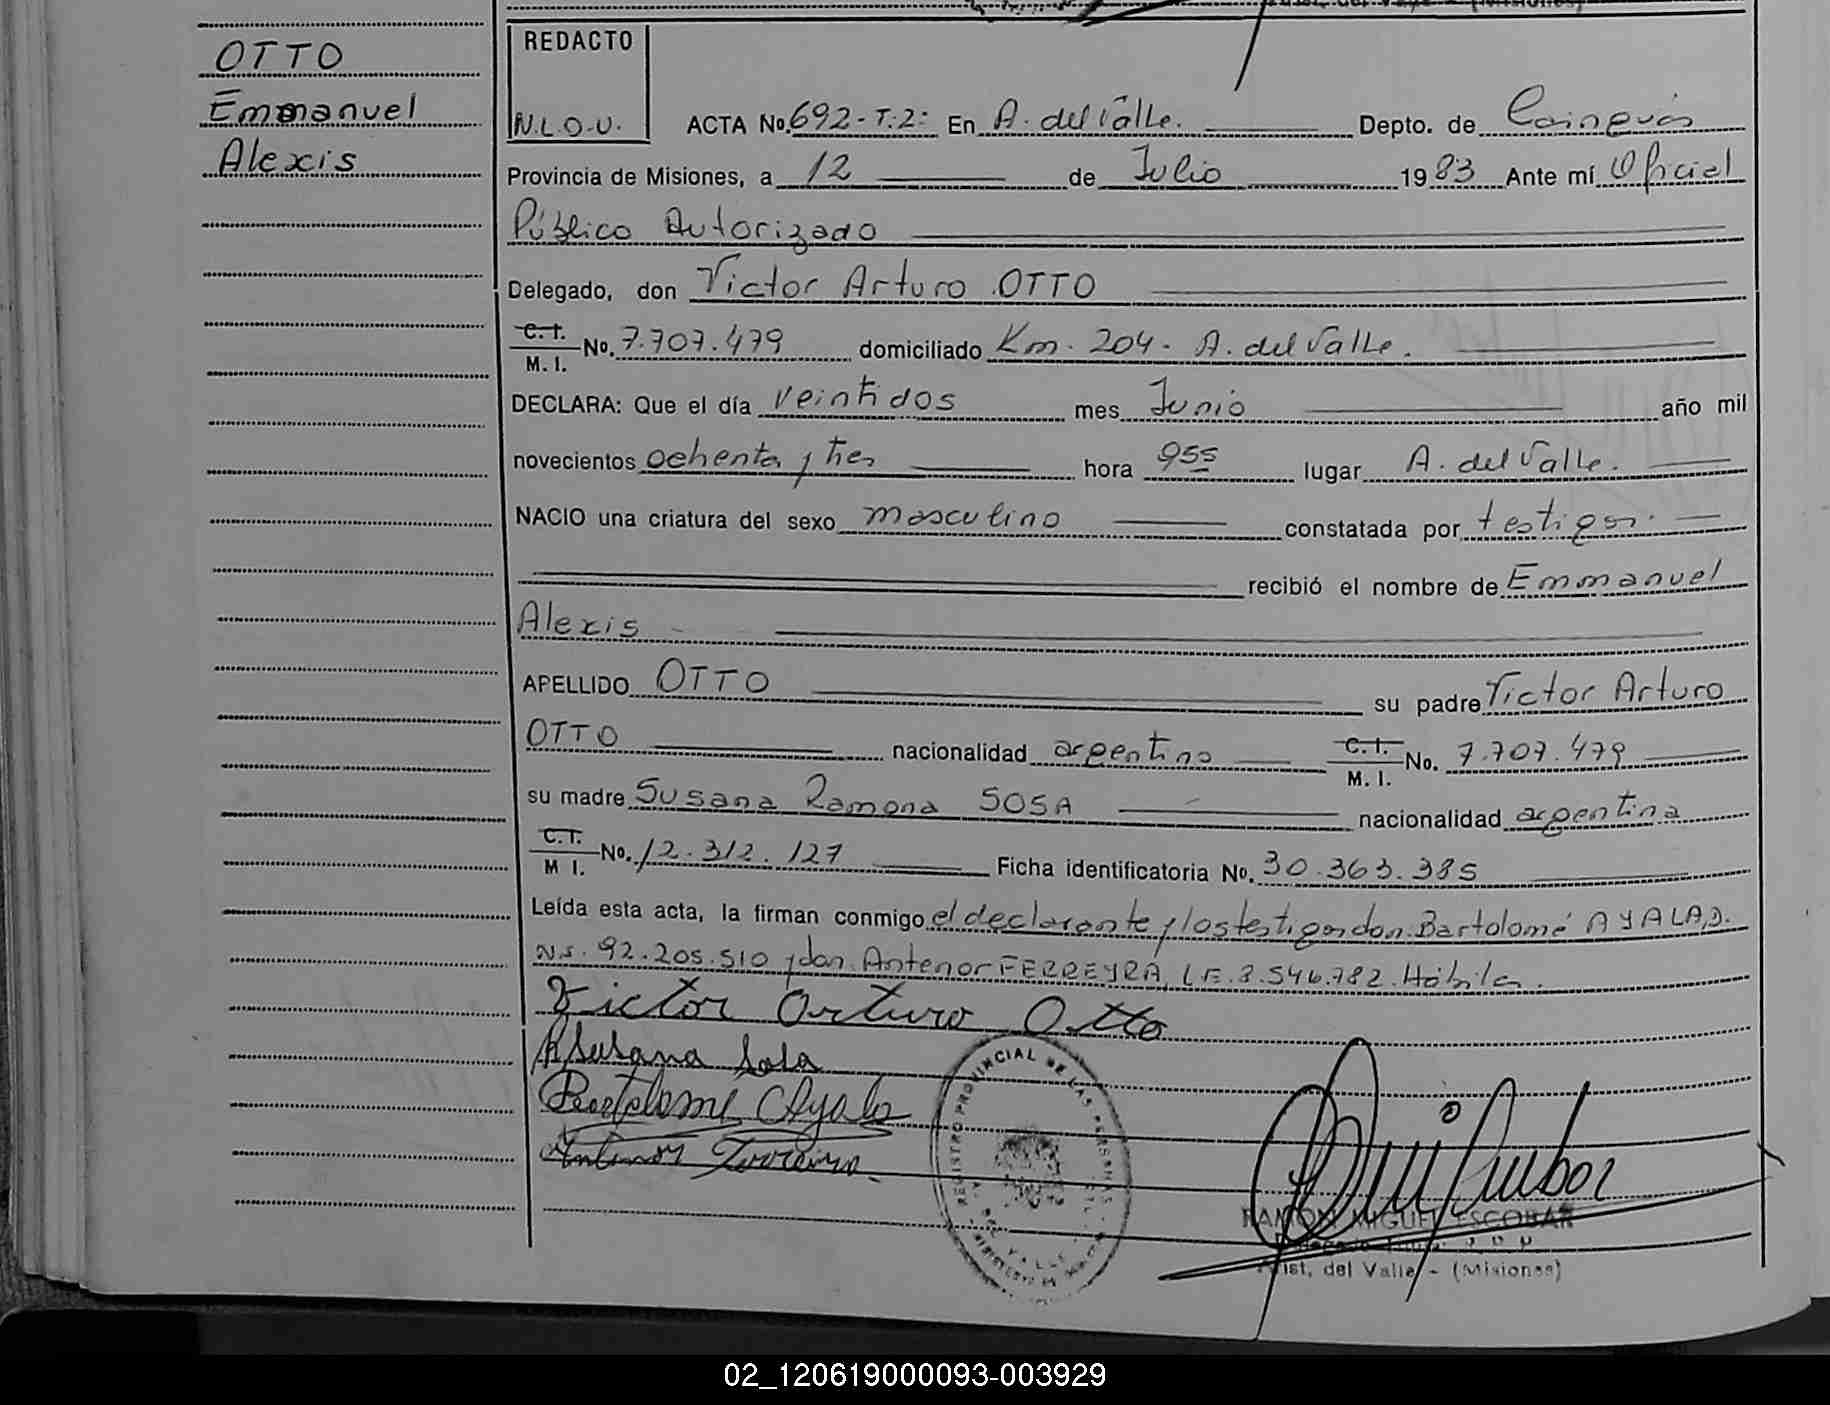 OTTO
Emmanuel
Alexis
REDACTO
N.L.O.U.
ACTA No. 692-T.2: En A. del Valle. Depto. de Cainguás
Provincia de Misiones, a 12 de Julio 1983 Ante mí Oficial
Público Autorizado
Delegado, don Victor Arturo OTTO
C.I. M.I. No. 7.707.479 domiciliado Km. 204- A. del Valle.
DECLARA: Que el día veintidos mes Junio año mil
novecientos ochenta y tres hora 955 lugar A. del Valle.
NACIO una criatura del sexo masculino constatada por testigos.
recibió el nombre de Emmanuel
Alexis
APELLIDO OTTO su padre Victor Arturo
OTTO nacionalidad argentino C.I. M.I. No. 7.707.479
su madre Susana Ramona SOSA nacionalidad argentina
C.I. M I. No. 12.312.127 Ficha identificatoria No. 30.363.385
Leída esta acta, la firman conmigo el declarante y los testigos don Bartolomé AYALA, D.
N.I. 92.205.510 y don Antenor FERREYRA, L.E. 8.546.782. Hábiles.
Victor Arturo Otto
R Susana Sosa
Bartolome Ayala
Antenor Ferreira
REGISTRO PROVINCIAL DE LAS PERSONAS
DEL VALLE
RAMON MIGUEL ESCOBAR
Arist. del Valle - (Misiones)
02_120619000093-003929